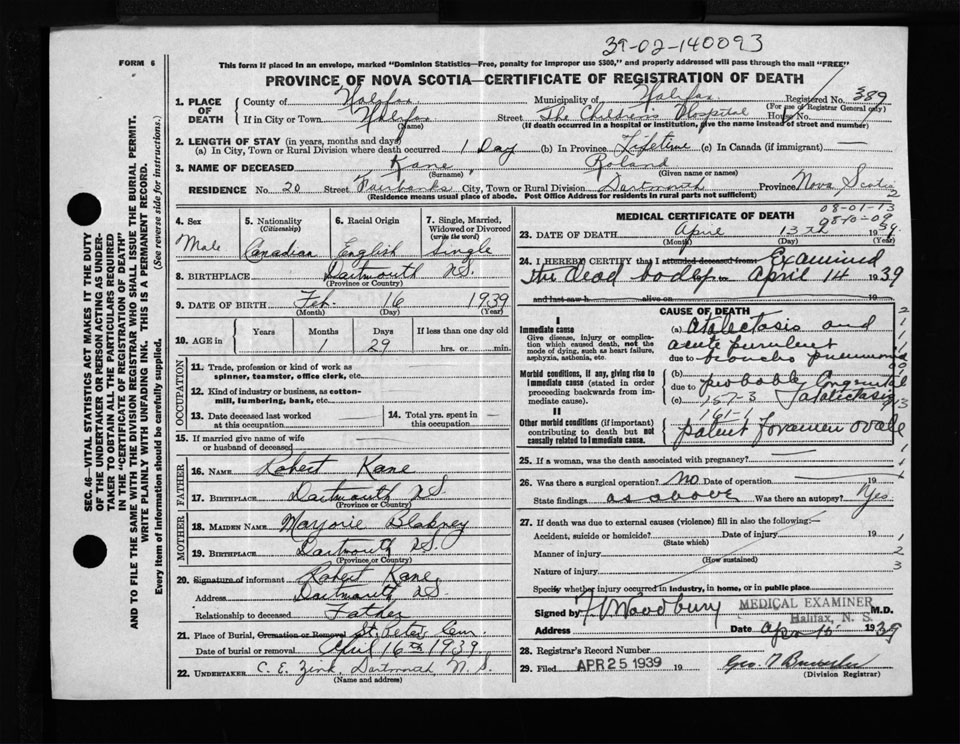 39-02-140093
FORM 6
This form if placed in an envelope, marked "Dominion Statistics—Free, penalty for improper use $300," and properly addressed will pass through the mail "FREE"
PROVINCE OF NOVA SCOTIA—CERTIFICATE OF REGISTRATION OF DEATH
1. PLACE OF DEATH County of Halifax Municipality of Halifax Registered No. 389
(For use of Registrar General only)
If in City or Town Halifax Street The Children's Hospital House No.
(Name) (If death occurred in a hospital or institution, give the name instead of street and number)
2. LENGTH OF STAY (in years, months and days)
(a) In City, Town or Rural Division where death occurred 1 Day (b) In Province Lifetime (c) In Canada (if immigrant) —
3. NAME OF DECEASED Kane Roland
(Surname) (Given name or names)
RESIDENCE No. 20 Street Fairbanks City, Town or Rural Division Dartmouth Province Nova Scotia
(Residence means usual place of abode. Post Office Address for residents in rural parts not sufficient)
2
SEC. 46—VITAL STATISTICS ACT MAKES IT THE DUTY
OF THE UNDERTAKER OR PERSON ACTING AS UNDER-
TAKER TO OBTAIN ALL THE PARTICULARS REQUIRED
IN THE "CERTIFICATE OF REGISTRATION OF DEATH"
AND TO FILE THE SAME WITH THE DIVISION REGISTRAR WHO SHALL ISSUE THE BURIAL PERMIT.
WRITE PLAINLY WITH UNFADING INK. THIS IS A PERMANENT RECORD.
Every item of information should be carefully supplied. (See reverse side for instructions.)
4. Sex Male
5. Nationality (Citizenship) Canadian
6. Racial Origin English
7. Single, Married, Widowed or Divorced (write the word) Single
8. BIRTHPLACE Dartmouth N.S.
(Province or County)
9. DATE OF BIRTH Feb. 16 1939
(Month) (Day) (Year)
10. AGE Years Months 1 Days 29 If less than one day old
hrs. or min.
OCCUPATION
11. Trade, profession or kind of work as spinner, teamster, office clerk, etc.
12. Kind of industry or business, as cotton-mill, lumbering, bank, etc.
13. Date deceased last worked at this occupation
14. Total yrs. spent in this occupation
15. If married give name of wife or husband of deceased
FATHER
16. NAME Robert Kane
17. BIRTHPLACE Dartmouth N.S.
(Province or County)
MOTHER
18. MAIDEN NAME Marjorie Blakney
19. BIRTHPLACE Dartmouth N.S.
(Province or County)
20. Signature of informant Robert Kane
Address Dartmouth, N.S.
Relationship to deceased Father
21. Place of Burial, Cremation or Removal St. Peters Cem
Date of burial or removal April 16th 1939.
22. UNDERTAKER C. E. Zink, Dartmouth, N. S.
(Name and address)
MEDICAL CERTIFICATE OF DEATH
08-01-13
23. DATE OF DEATH April 13th 1939.
(Month) (Day) (Year)
24. I HEREBY CERTIFY that I attended deceased from Examined
the dead body on April 14 1939
and last saw h alive on 19
CAUSE OF DEATH
I
Immediate cause
Give disease, injury or complication which caused death, not the mode of dying, such as heart failure, asphyxia, asthenia, etc.
(a) Atalectasis and
acute purulent
due to broncho pneumonia
Morbid conditions, if any, giving rise to immediate cause (stated in order proceeding backwards from immediate cause).
(b)
due to probably Congenital
(c) 157-3 Atalectasis
II
161-1
Other morbid conditions (if important) contributing to death but not causally related to immediate cause.
patent foramen ovale
25. If a woman, was the death associated with pregnancy? —
26. Was there a surgical operation? No Date of operation
State findings as above Was there an autopsy? Yes
27. If death was due to external causes (violence) fill in also the following:—
Accident, suicide or homicide? Date of injury 19
(State which)
Manner of injury
(How sustained)
Nature of injury
Specify whether injury occurred in industry, in home, or in public place
1
2
3
Signed by Woodbury MEDICAL EXAMINER M.D.
Halifax, N. S.
Address Date Apr 15 1939
28. Registrar's Record Number
29. Filed APR 25 1939 19 Geo. T
(Division Registrar)